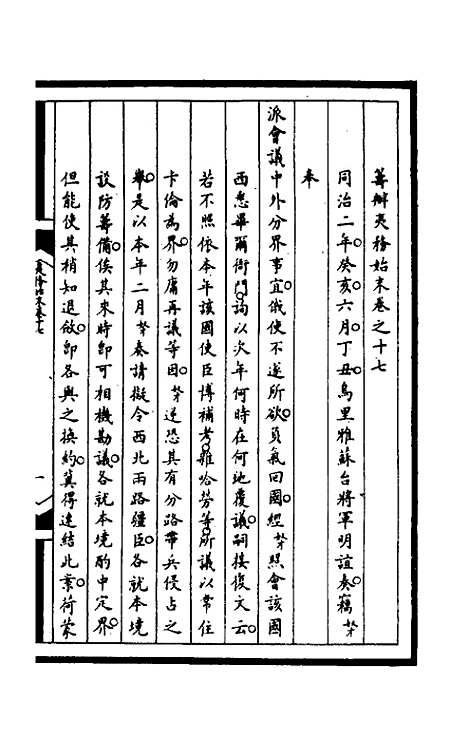 籌辦夷務始末卷之十七
同治二年癸亥六月丁丑烏里雅蘇台將軍明誼奏竊䒭
奉
派會議中外分界事宜俄使不遂所欲負氣回國經䒭照會該國
西悉畢爾衙門詢以次年何時在何地覆議嗣接復文云
若不照依本年該國使臣博補考雜哈勞等所議以常住
卡倫為界勿庸再議等因䒭逆恐其有分路帶兵侵占之
舉是以本年二月䒭奏請擬令西北兩路疆臣各就本境
設防籌備俟其來時即可相機勘議各就本境酌中定界
但能使其稍知退斂即各與之換約冀得速結此業荷蒙